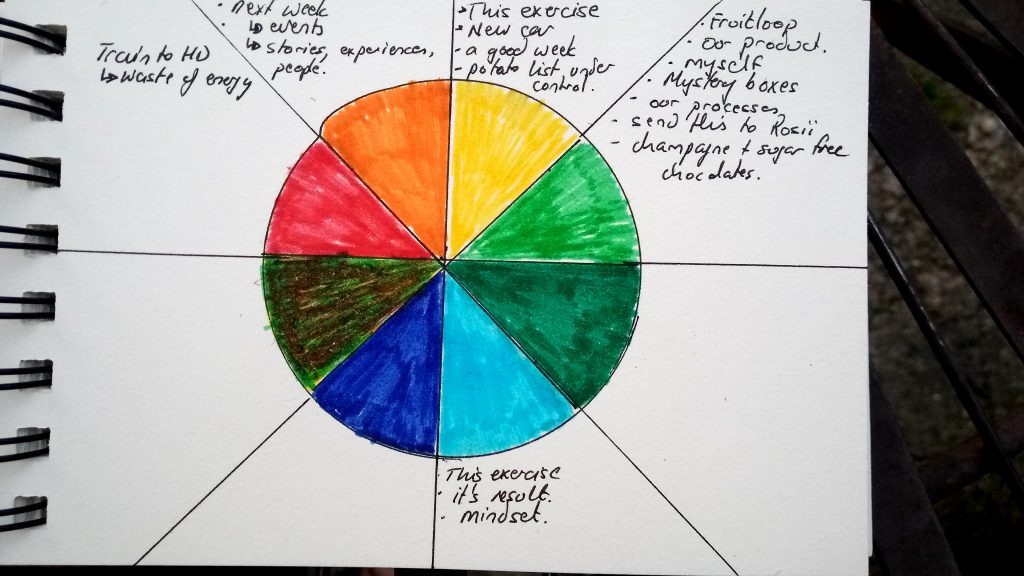 Train to HD
↳ Waste of energy
• Next week
↳ events
↳ stories, experiences,
people.
• This exercise
• New car
- a good week
- potato list under
control.
• Fruitloop
• our product.
• myself
• Mystery boxes
- our processes
- send this to Rosii
- champagne + sugar free
chocolates.
• This exercise
• it's result.
• mindset.